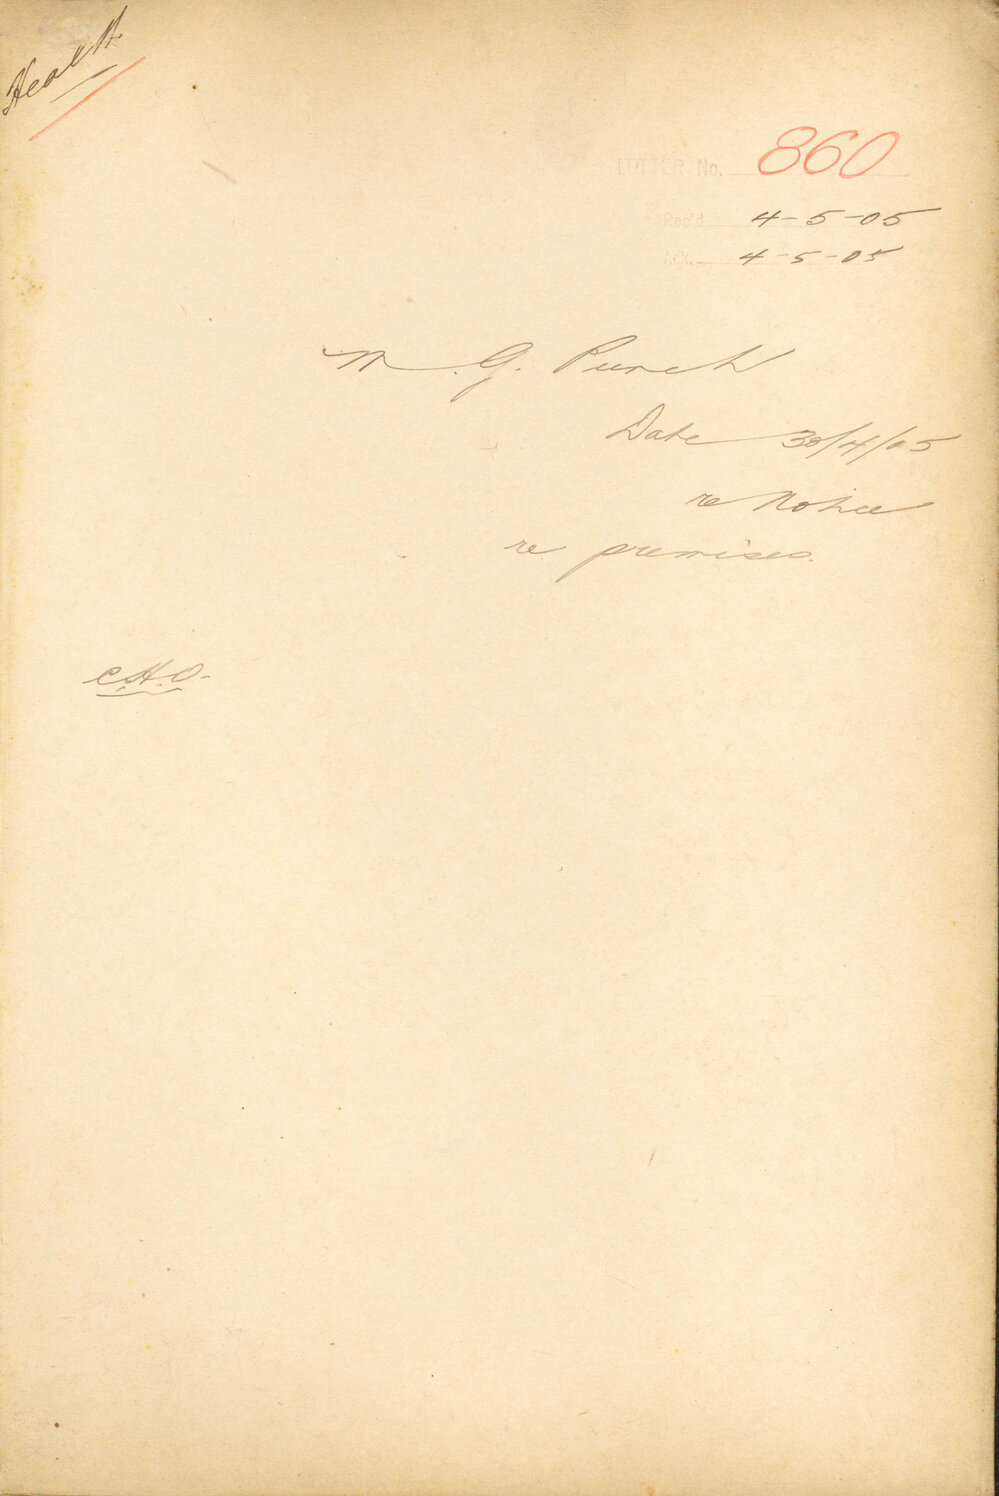 Health
LETTER No. 860
Rec'd 4-5-05
Ack. 4-5-05
M. G. Punch
Date 30/4/05
re Notice
re premises.
C.H.O.